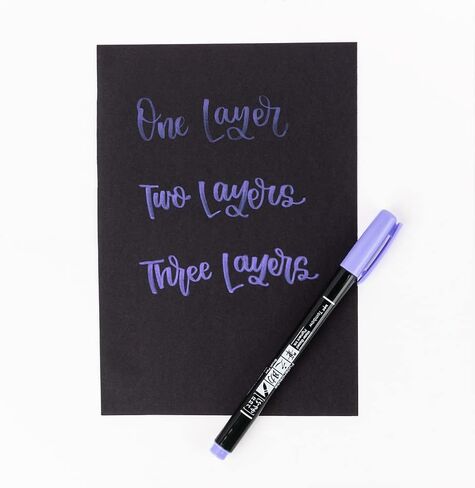 One Layer
Two Layers
Three Layers
Tombow